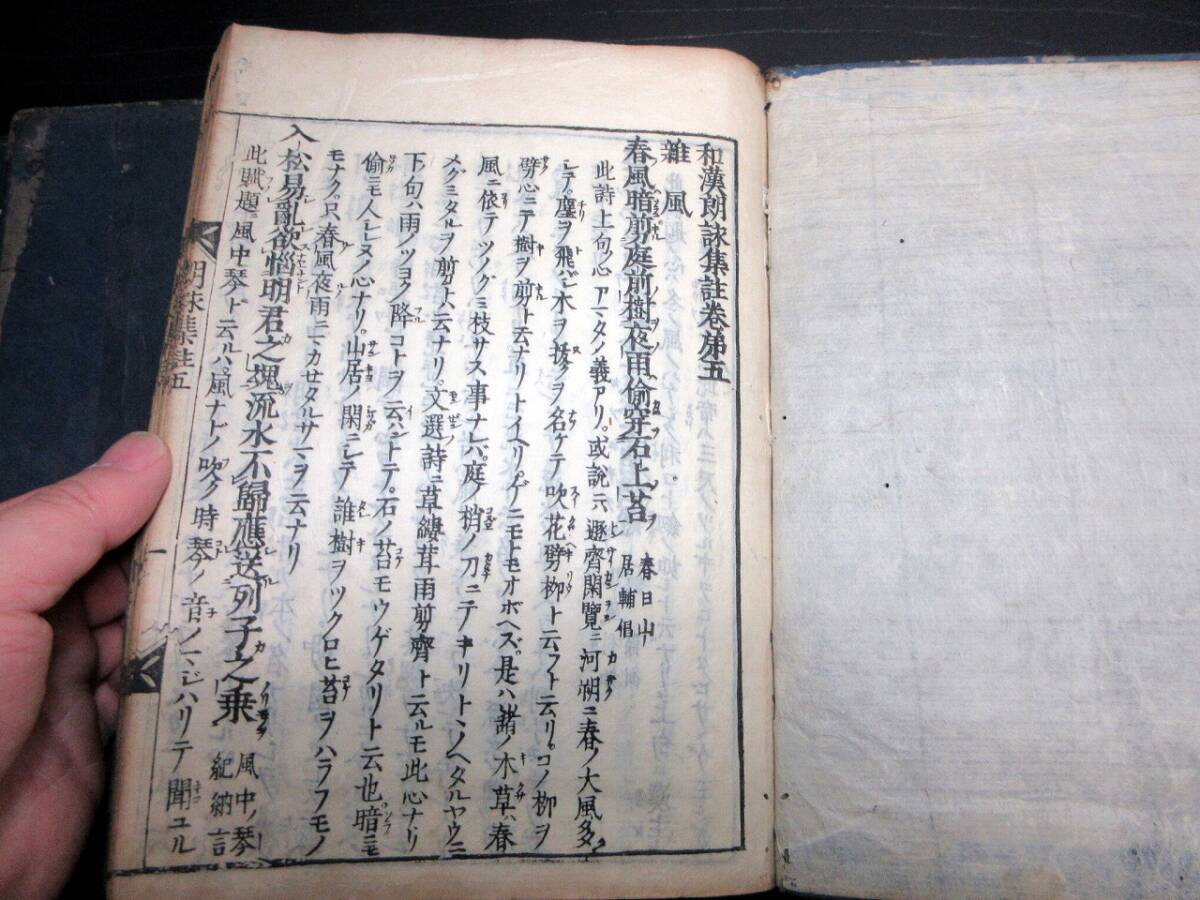 和漢朗詠集註卷第五
雜
風
春風暗剪庭前樹夜雨偷穿石上苔 春日山居輔倡
此詩上句ノ心アマタノ義アリ。或說ニハ遯齊閑覽ニ河湖ニ春ノ大風多
シテ。塵ヲ飛バシ木ヲ拔クヲ名ケテ吹花劈柳ト云フト云リ。コノ柳ヲ
劈心ニテ樹ヲ剪ト云ナリトイヘリ。ゲニモトモオボヘズ。是ハ諸ノ木草ハ春
風ニ依テツノグミ枝サス事ナレバ。庭ノ梢ノ刀ニテキリトヽノヘタルヤウニ
メグミタルヲ剪ト云ナリ。文選詩ニ草縷茸雨剪齊ト云ルモ此心ナリ
下ノ句ハ雨ノツヨク降コトヲ云ハントテ。石ノ苔モウゲタリト云也。暗ニモ
偷ニモ人シレヌノ心ナリ。山居ノ閑ニシテ誰樹ヲツクロヒ苔ヲハラフモノ
モナク。只春風夜雨ニマカせタルサマヲ云ナリ
入松易亂欲惱明君之塊流水不歸應送列子之乗 風中ノ琴 紀納言
此賦題ニ風中琴ト云ルハ。風ナドノ吹ク時琴ノ音ノマジハリテ聞ユル
朗詠集註五 一